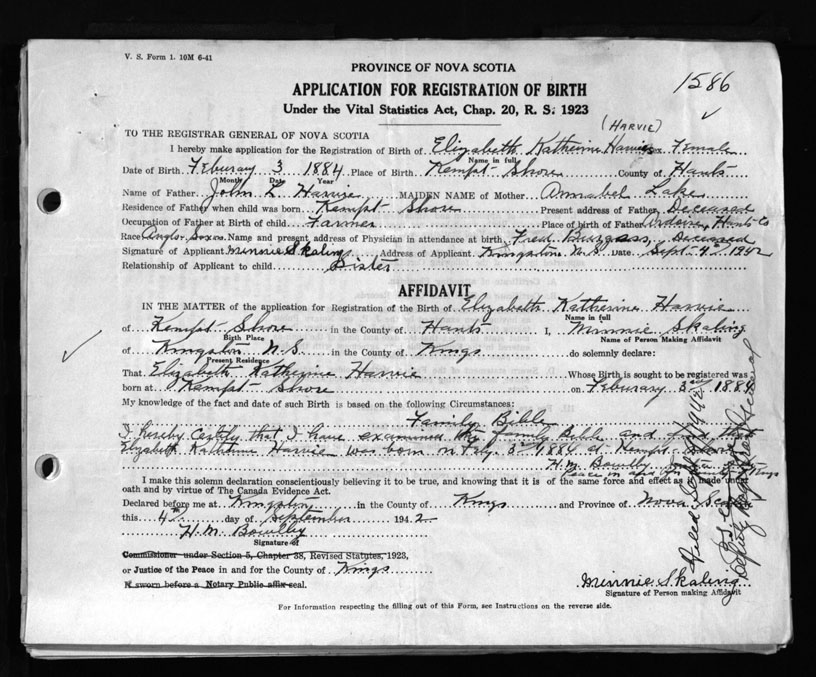 V. S. Form 1. 10M 6-41
PROVINCE OF NOVA SCOTIA
1586
APPLICATION FOR REGISTRATION OF BIRTH
Under the Vital Statistics Act, Chap. 20, R. S. 1923
(HARVIE)
TO THE REGISTRAR GENERAL OF NOVA SCOTIA
I hereby make application for the Registration of Birth of Elizabeth Katherine Harvie Female
Name in full
Date of Birth Feburary 3 1884 Place of Birth Kempt Shore County of Hants
Month Date Year
Name of Father John L. Harvie MAIDEN NAME of Mother Annabel Lake
Residence of Father when child was born Kempt Shore Present address of Father Deceased
Occupation of Father at Birth of child Farmer Place of birth of Father Hants Co
Race Anglo Saxon Name and present address of Physician in attendance at birth Fred Burgess, Deceased
Signature of Applicant Minnie Skaling Address of Applicant Kingston N.S. Date Sept 4th 1942
Relationship of Applicant to child Sister
AFFIDAVIT
IN THE MATTER of the application for Registration of the Birth of Elizabeth Katherine Harvie
Name in full
of Kempt Shore in the County of Hants I, Minnie Skaling
Birth Place Name of Person Making Affidavit
of Kingston N.S. in the County of Kings do solemnly declare:
Present Residence
That Elizabeth Katherine Harvie Whose Birth is sought to be registered was
born at Kempt Shore on Feburary 3rd 1884
My knowledge of the fact and date of such Birth is based on the following Circumstances:
Family Bible
I hereby certify that I have examined the family Bible and find that
Elizabeth Katherine Harvie was born on Feby. 3rd 1884 at Kempt Shore
H. M. Bowlby
Peace in and for County of Kings
I make this solemn declaration conscientiously believing it to be true, and knowing that it is of the same force and effect as if made under
oath and by virtue of The Canada Evidence Act.
Declared before me at Kingston in the County of Kings and Province of Nova Scotia
this 4th day of September 1942
H. M. Bowlby
Signature of
Commissioner under Section 5, Chapter 38, Revised Statutes, 1923,
or Justice of the Peace in and for the County of Kings
If sworn before a Notary Public affix seal.
Minnie Skaling
Signature of Person making Affidavit
For Information respecting the filling out of this Form, see Instructions on the reverse side.
Filed Sept
Deputy Registrar General